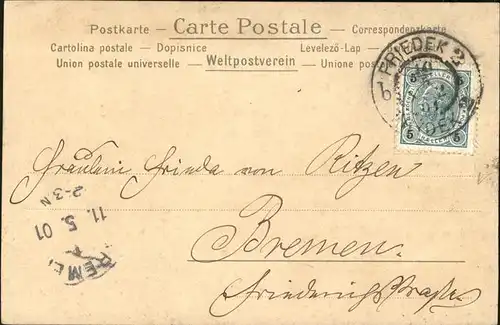 Postkarte – Carte Postale – Correspondenzkarte
Cartolina postale – Dopisnice Levelező-Lap –
Union postale universelle – Weltpostverein – Unione
FRIEDEK 2
b
5 5
Fräulein Frieda von Ritzen
Bremen.
Friederichstraße
2-3 N
11. 5. 01